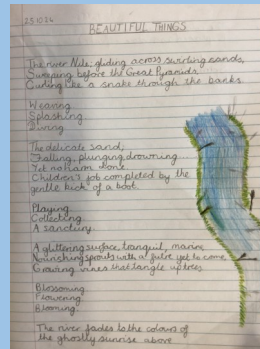 25.10.24
BEAUTIFUL THINGS
The river Nile, gliding across swirling sands,
Sweeping before the Great Pyramids,
Curling like a snake through the banks.
Weaving
Splashing
Diving
The delicate sand,
Falling, plunging, drowning...
Yet no harm done.
Children's job completed by the
gentle kick of a boot.
Playing
Collecting
A sanctuary.
A glittering surface, tranquil, marine
Nourishing sprouts with a future yet to come,
Growing vines that tangle up trees.
Blossoming
Flowering
Blooming.
The river fades to the colours of
the ghostly sunrise above